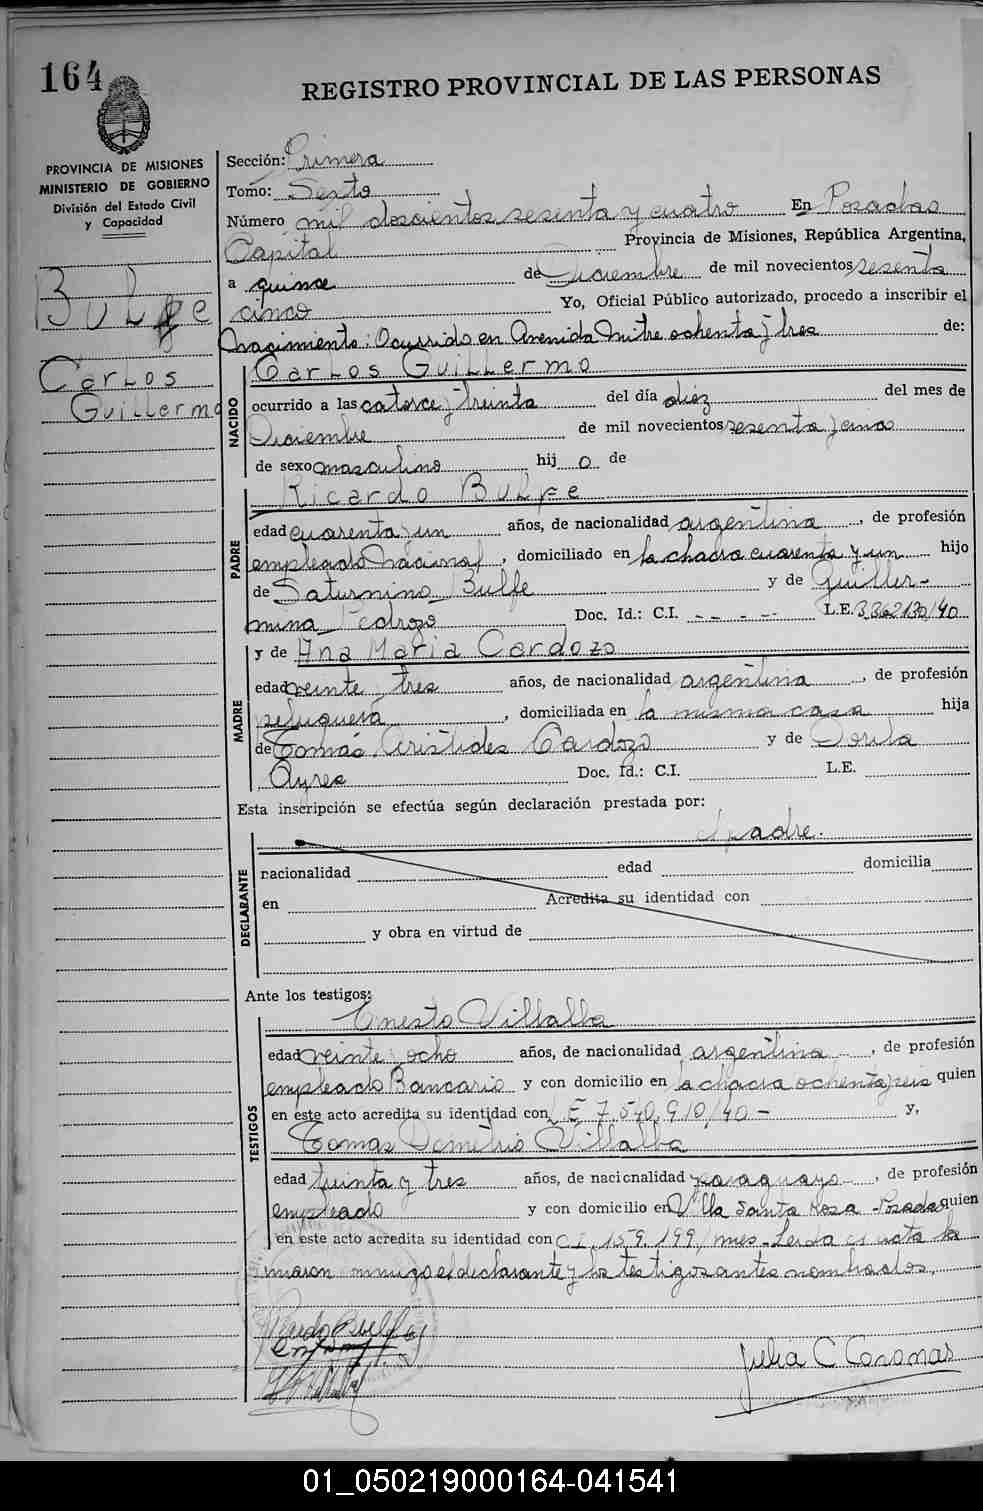 164
REGISTRO PROVINCIAL DE LAS PERSONAS
PROVINCIA DE MISIONES
MINISTERIO DE GOBIERNO
División del Estado Civil
y Capacidad
Bulfe
Carlos
Guillermo
Sección: Primera
Tomo: Sexto
Número mil doscientos sesenta y cuatro En Posadas
Capital Provincia de Misiones, República Argentina,
a quince de Diciembre de mil novecientos sesenta
cinco Yo, Oficial Público autorizado, procedo a inscribir el
Nacimiento: Ocurrido en Avenida Mitre ochenta y tres de:
NACIDO
Carlos Guillermo
ocurrido a las catorce y treinta del día diez del mes de
Diciembre de mil novecientos sesenta y cinco
de sexo masculino hij o de
PADRE
Ricardo Bulfe
edad cuarenta y un años, de nacionalidad argentina, de profesión
empleado Nacional, domiciliado en la chacra cuarenta y un hijo
de Saturnino Bulfe y de Guiller-
mina Pedrozo Doc. Id.: C.I. - - - - - L.E. 3.362.130/40
MADRE
y de Ana Maria Cardozo
edad veinte y tres años, de nacionalidad argentina, de profesión
peluquera, domiciliada en la misma casa hija
de Tomás Aristides Cardozo y de Dorila
Ayres Doc. Id.: C.I. L.E.
Esta inscripción se efectúa según declaración prestada por:
DECLARANTE
el padre.
nacionalidad edad domicilia
en Acredita su identidad con
y obra en virtud de
Ante los testigos:
TESTIGOS
Ernesto Villalba
edad veinte y ocho años, de nacionalidad argentina, de profesión
empleado Bancario y con domicilio en la chacra ochenta y seis quien
en este acto acredita su identidad con L E 7.540.910/40 - y,
Tomas Demetrio Villalba
edad treinta y tres años, de nacionalidad paraguayo, de profesión
empleado y con domicilio en Villa Santa Rosa - Posadas quien
en este acto acredita su identidad con C.I. 159.199/ mes - Leida el acta la
firmaron conmigo el declarante y los testigos antes nombrados.
Julia C Coronas
01_050219000164-041541